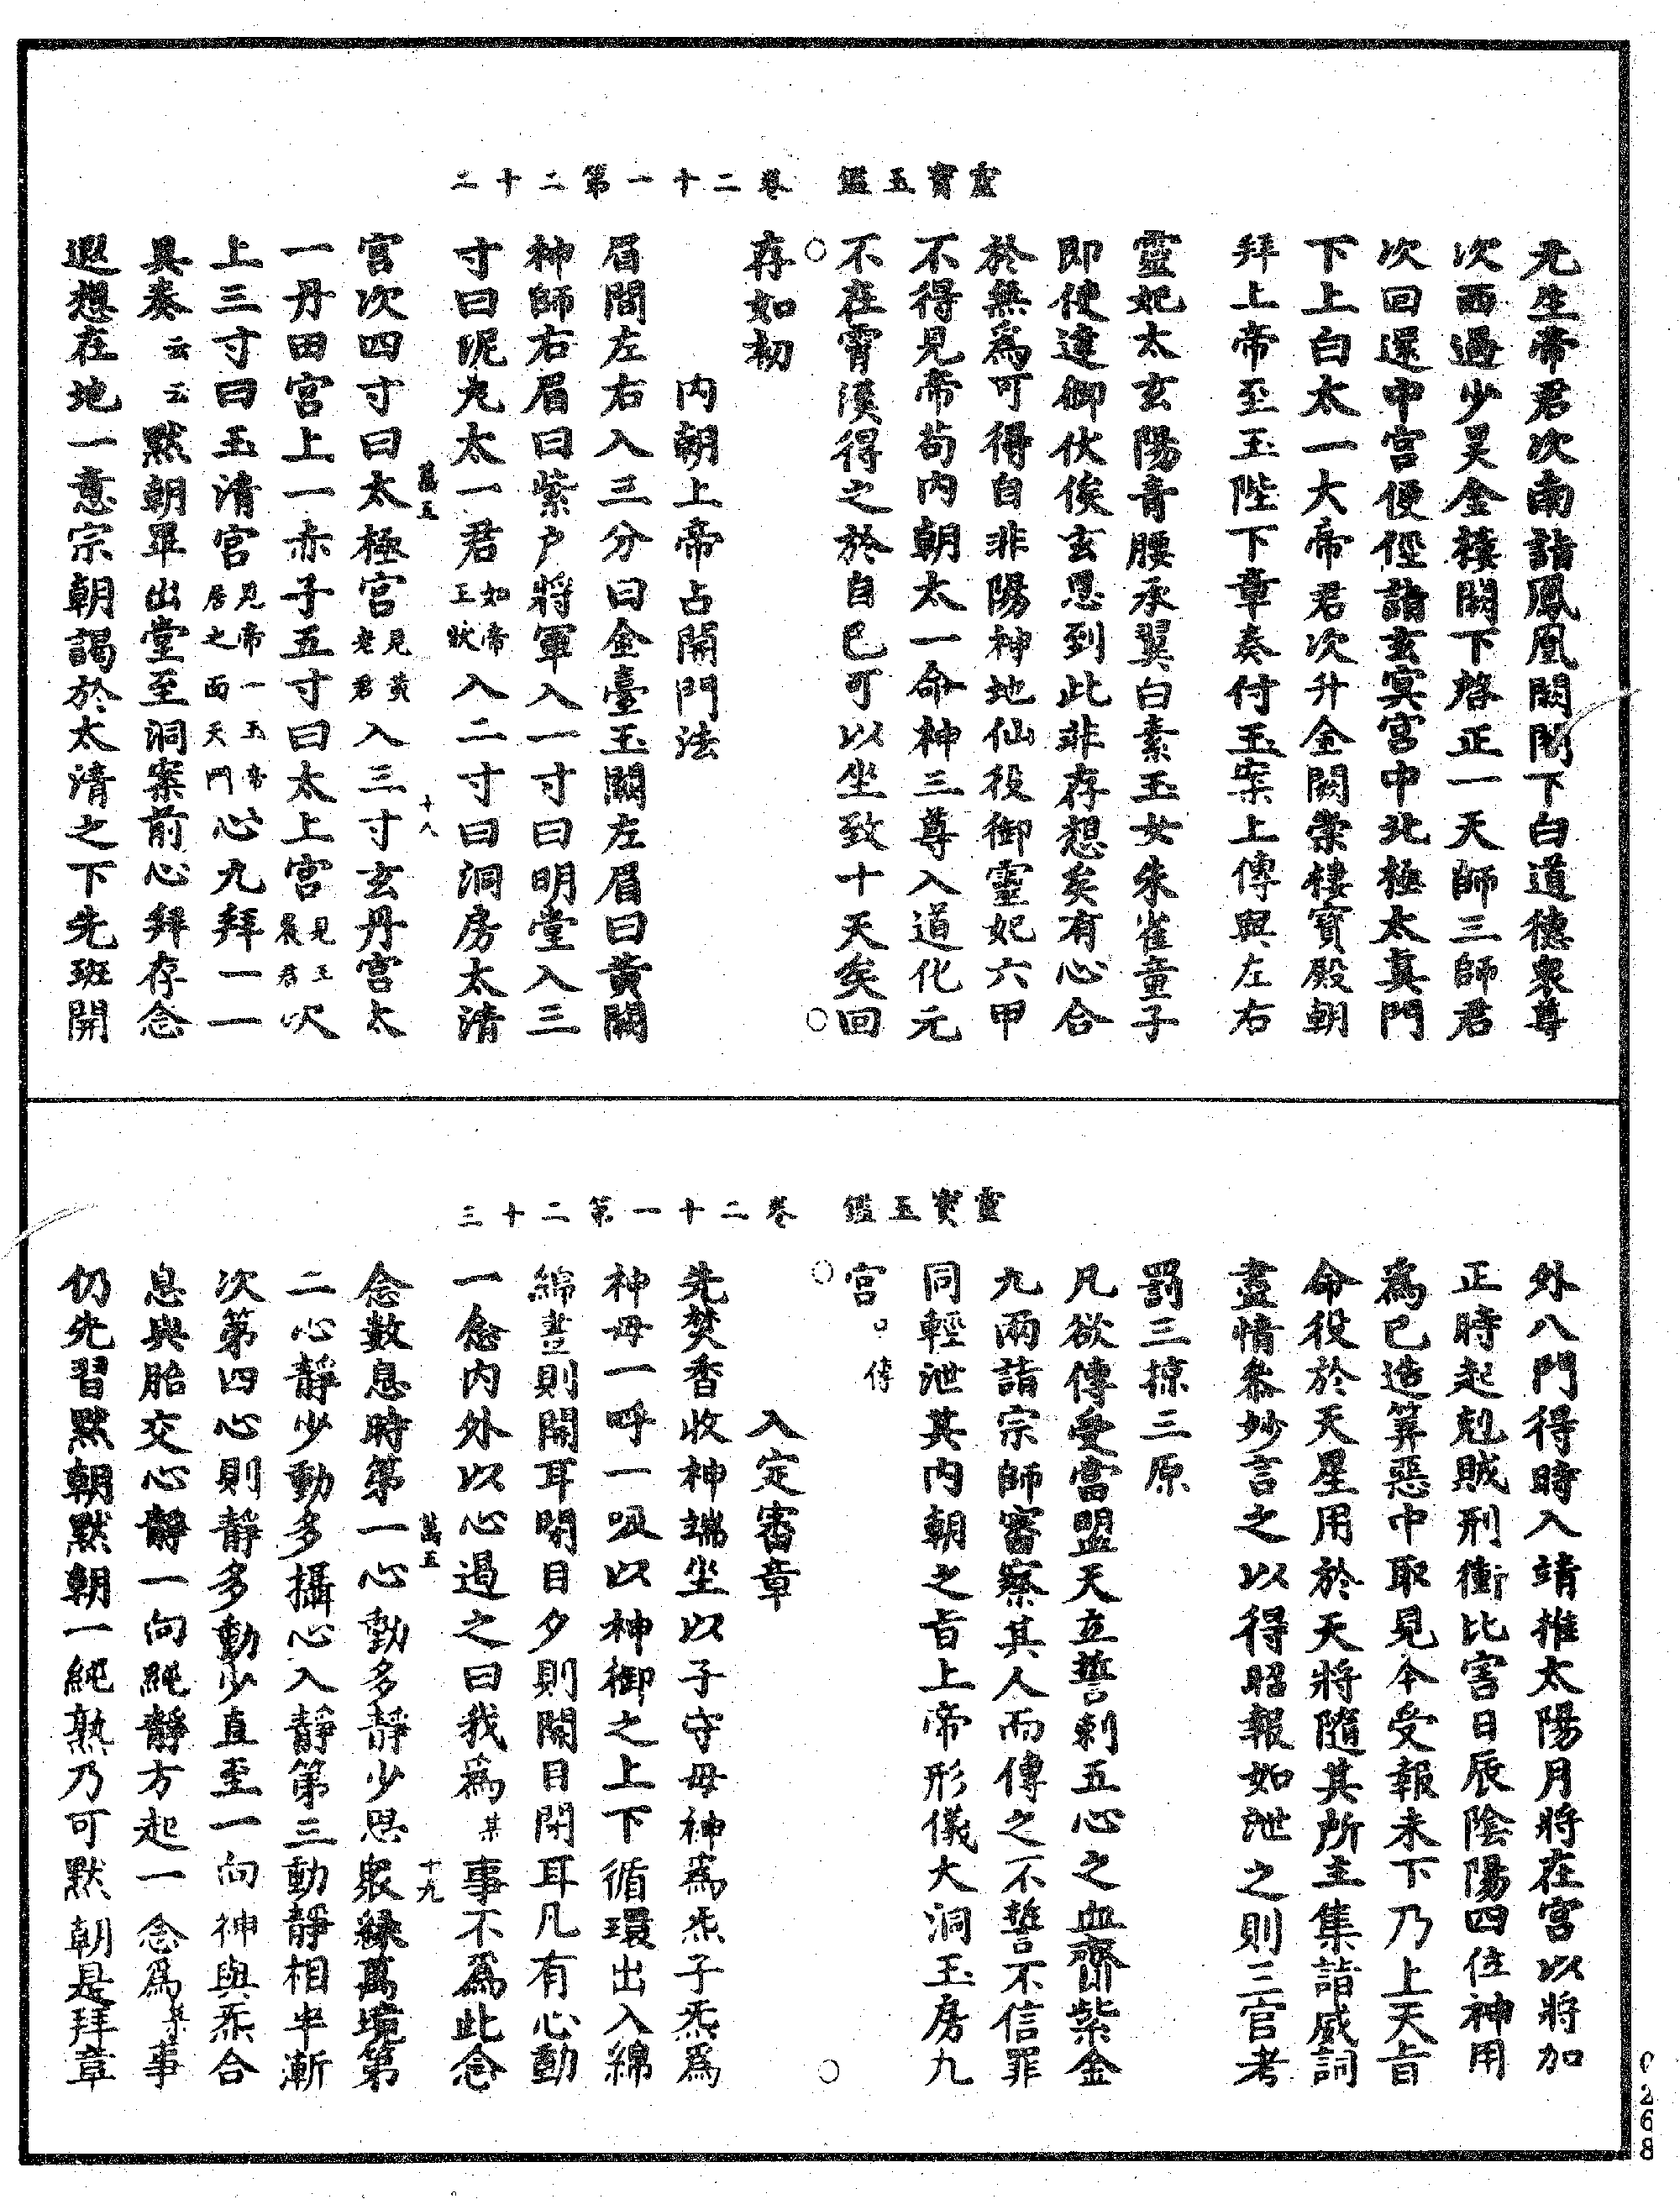 靈寶玉鑑　卷二十一第二十二
元生帝君次南詣鳳凰闕閣下白道德衆尊
次西過少昊金樓闕下啓正一天師三師君
次回還中宮便徑詣玄冥宮中北極太真門
下上白太一大帝君次升金闕崇樓寶殿朝
拜上帝至玉陛下章奏付玉案上傳與左右
靈妃太玄陽青腰承翼白素玉女朱雀童子
即使達御伏俟玄恩到此非存想矣有心合
於無爲可得自非陽神地仙役御靈妃六甲
不得見帝苟内朝太一命神三尊入道化元
不在霄漢得之於自已可以坐致十天矣回
存如初
内朝上帝占開門法
眉間左右入三分曰金臺玉闕左眉曰黄闕
神師右眉曰紫户將軍入一寸曰明堂入三
寸曰泥丸太一君如帝王狀入二寸曰洞房太清
萬五　十八
宮次四寸曰太極宮見黄老君入三寸玄丹宮太
一丹田宮上一赤子五寸曰太上宮見玉晨君次
上三寸曰玉清宮見帝一玉帝居之面天門心九拜一一
具奏云云默朝畢出堂至洞案前心拜存念
遐想在地一意宗朝謁於太清之下先班開
靈寶玉鑑　卷二十一第二十三
外八門得時入靖推太陽月將在宮以將加
正時起剋賊刑衝比害日辰陰陽四位神用
爲已造筭惡中取見今受報未下乃上天旨
命役於天星用於天將隨其所主集詣威詞
盡情叅妙言之以得昭報如泄之則三官考
罰三掠三原
凡欲傳受當盟天立誓刺五心之血齎紫金
九兩詣宗師審察其人而傳之不誓不信罪
同輕泄其内朝之旨上帝形儀大洞玉房九
宮口傳
入定審章
先焚香收神端坐以子守母神爲炁子炁爲
神母一呼一吸以神御之上下循環出入綿
綿晝則開耳閉目夕則開目閉耳凡有心動
一念内外以心過之曰我爲某事不爲此念
萬五　十九
念數息時第一心動多靜少思衆緣萬境第
二心靜少動多攝心入靜第三動靜相半漸
次第四心則靜多動少直至一向神與炁合
息與胎交心靜一向純靜方起一念爲某事
仍先習默朝默朝一純熟乃可默朝是拜章
0268